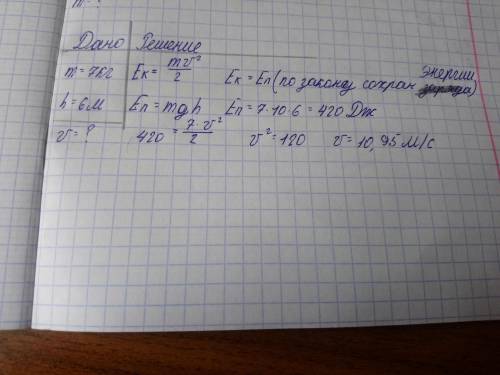 m = ?
Дано Решение
m = 7кг Eк = mv²/2 Eк = Eп (по закону сохран энергии)
h = 6м Eп = mgh Eп = 7·10·6 = 420 Дж
v = ? 420 = 7·v²/2 v² = 120 v = 10,95 м/с